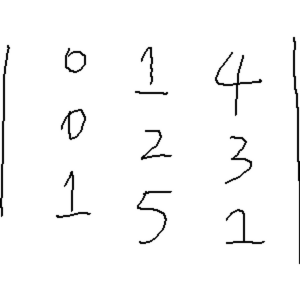 | 0 1 4 |
| 0 2 3 |
| 1 5 1 |